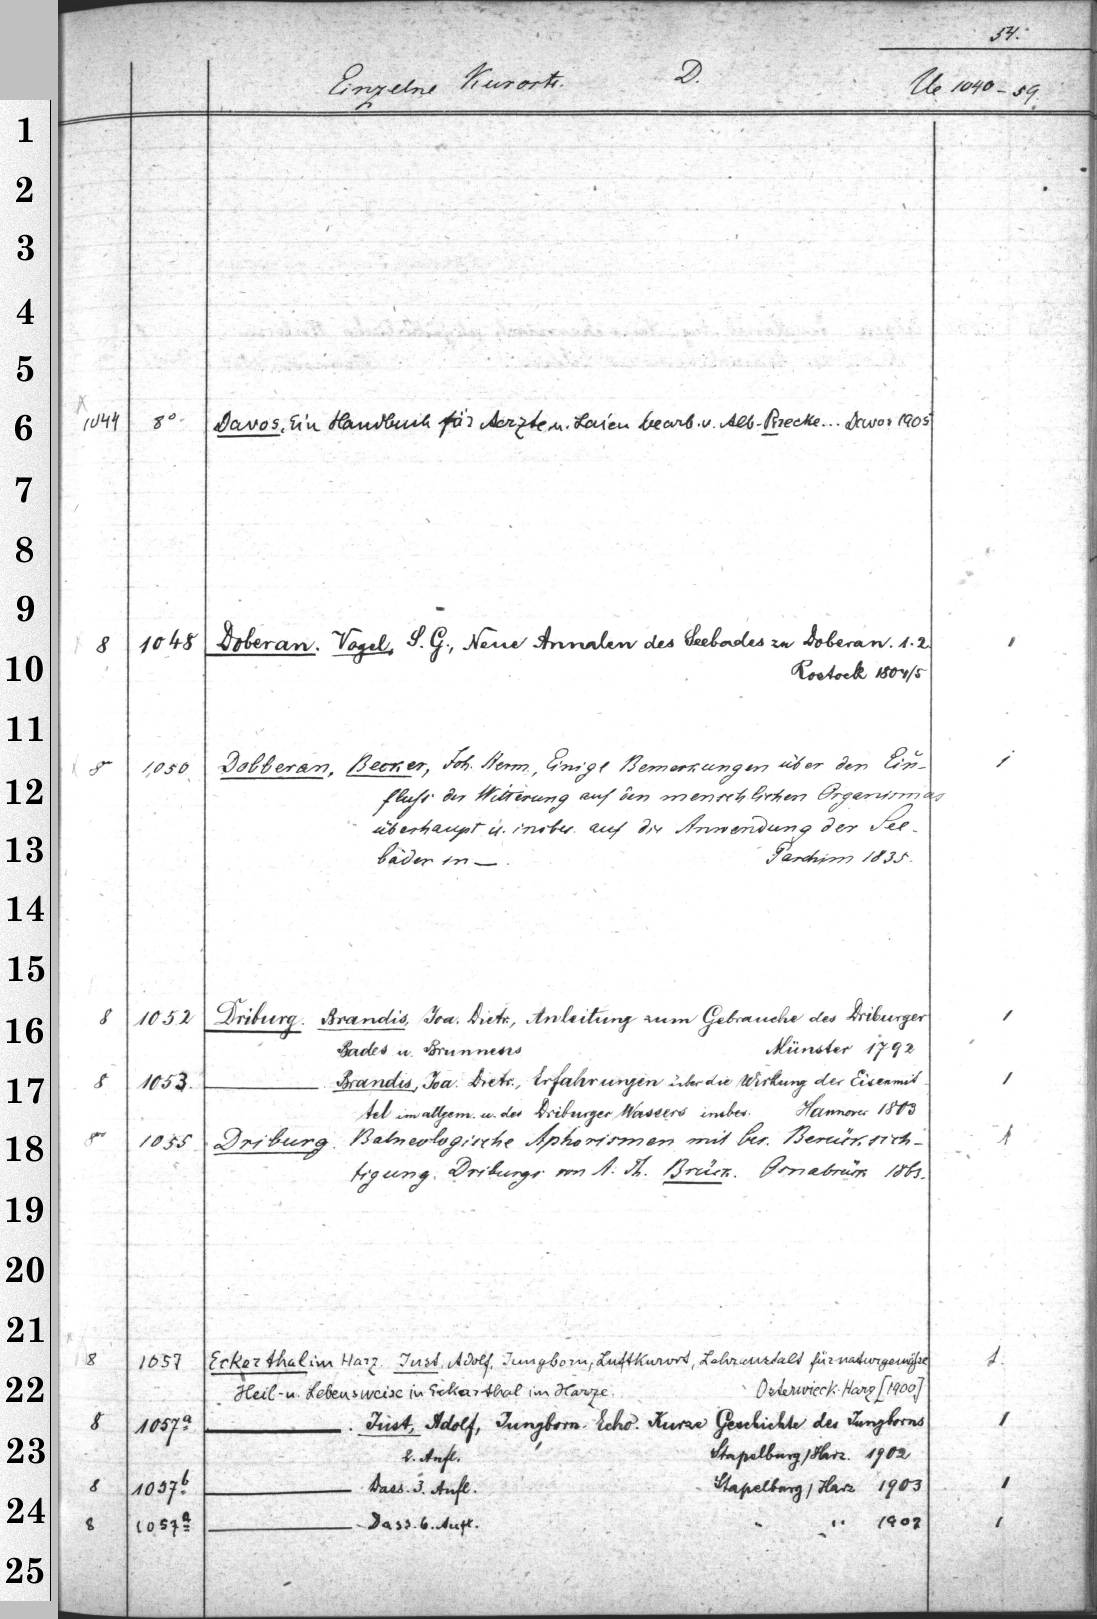 54.
Einzelne Kurorte. D. Ue 1040-59.
1
2
3
4
5
1044 8° Davos, Ein Handbuch für Aerzte u. Laien bearb. v. Alb. ... Davos 1905
6
7
8
9
8 1048 Doberan. Vogel, S. G., Neue Annalen des Seebades zu Doberan. 1.2. 1
10 Rostock 1804/5
11
8° 1050 Dobberan, Becker, Joh. Herm., Einige Bemerkungen über den Ein- 1
12 fluss der Witterung auf den menschlichen Organismus
überhaupt u. insbes. auf die Anwendung der See-
13 bäder in —. Parchim 1835.
14
15
8 1052 Driburg. Brandis, Joa. Dietr., Anleitung zum Gebrauche des Driburger 1
16 Bades u. Brunnens Münster 1792
17 8 1053. — Brandis, Joa. Dietr., Erfahrungen über die Wirkung der Eisenmit- 1
tel im allgem. u. des Driburger Wassers insbes. Hannover 1803
18 8° 1055 Driburg. Balneologische Aphorismen mit bes. Berücksich-
tigung Driburgs von A. Th. Brück. Osnabrück 1863.
19
20
21
8 1057 Eckerthal im Harz. Just, Adolf, Jungborn, Luftkurort, Lehranstalt für naturgemäße 1.
22 Heil- u. Lebensweise in Eckerthal im Harze. Osterwieck-Harz [1900]
8 1057a — . Just, Adolf, Jungborn-Echo. Kurze Geschichte des Jungborns 1
23 2. Aufl. Stapelburg/Harz. 1902
8 1057b — Dass. 3. Aufl. Stapelburg/Harz 1903 1
24
8 1057a — Dass. 6. Aufl. " " 1907 1
25